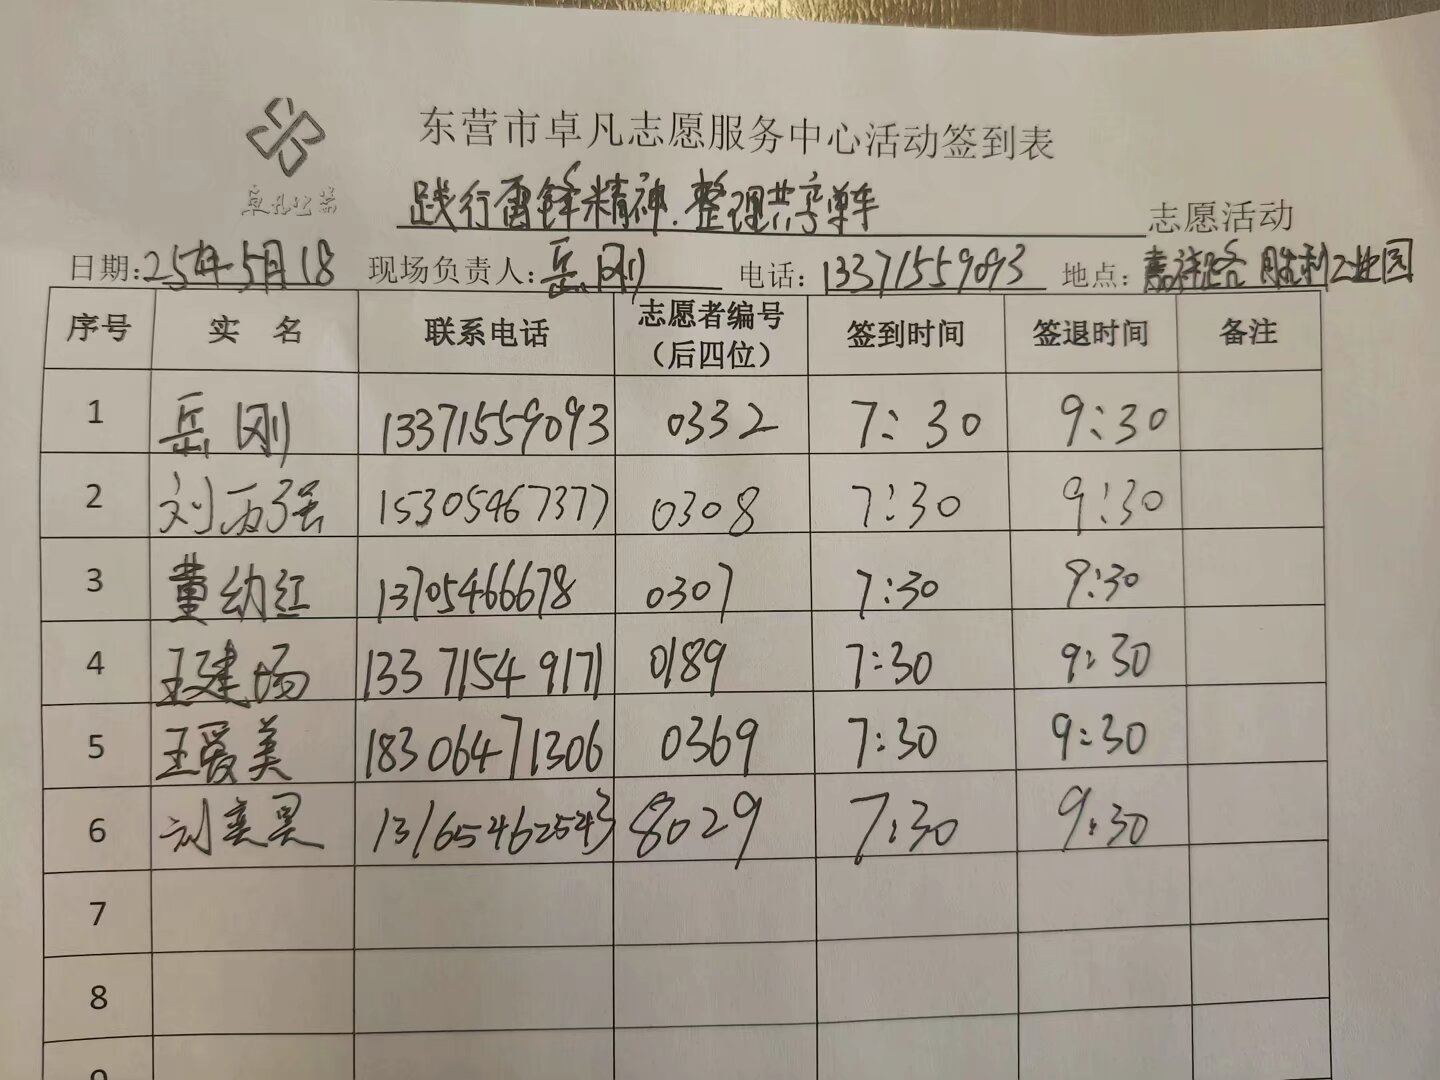 东营市卓凡志愿服务中心活动签到表
践行雷锋精神.整理共享单车 志愿活动
日期:25年5月18 现场负责人:岳刚 电话:13371559093 地点:嘉祥路 胜利工业园
序号 实 名 联系电话 志愿者编号（后四位） 签到时间 签退时间 备注
1 岳刚 13371559093 0332 7:30 9:30
2 刘万强 15305467377 0308 7:30 9:30
3 董幼红 13705466678 0307 7:30 9:30
4 王建场 13371549171 0189 7:30 9:30
5 王爱美 18306471306 0369 7:30 9:30
6 刘 13165462543 8029 7:30 9:30
7
8
9